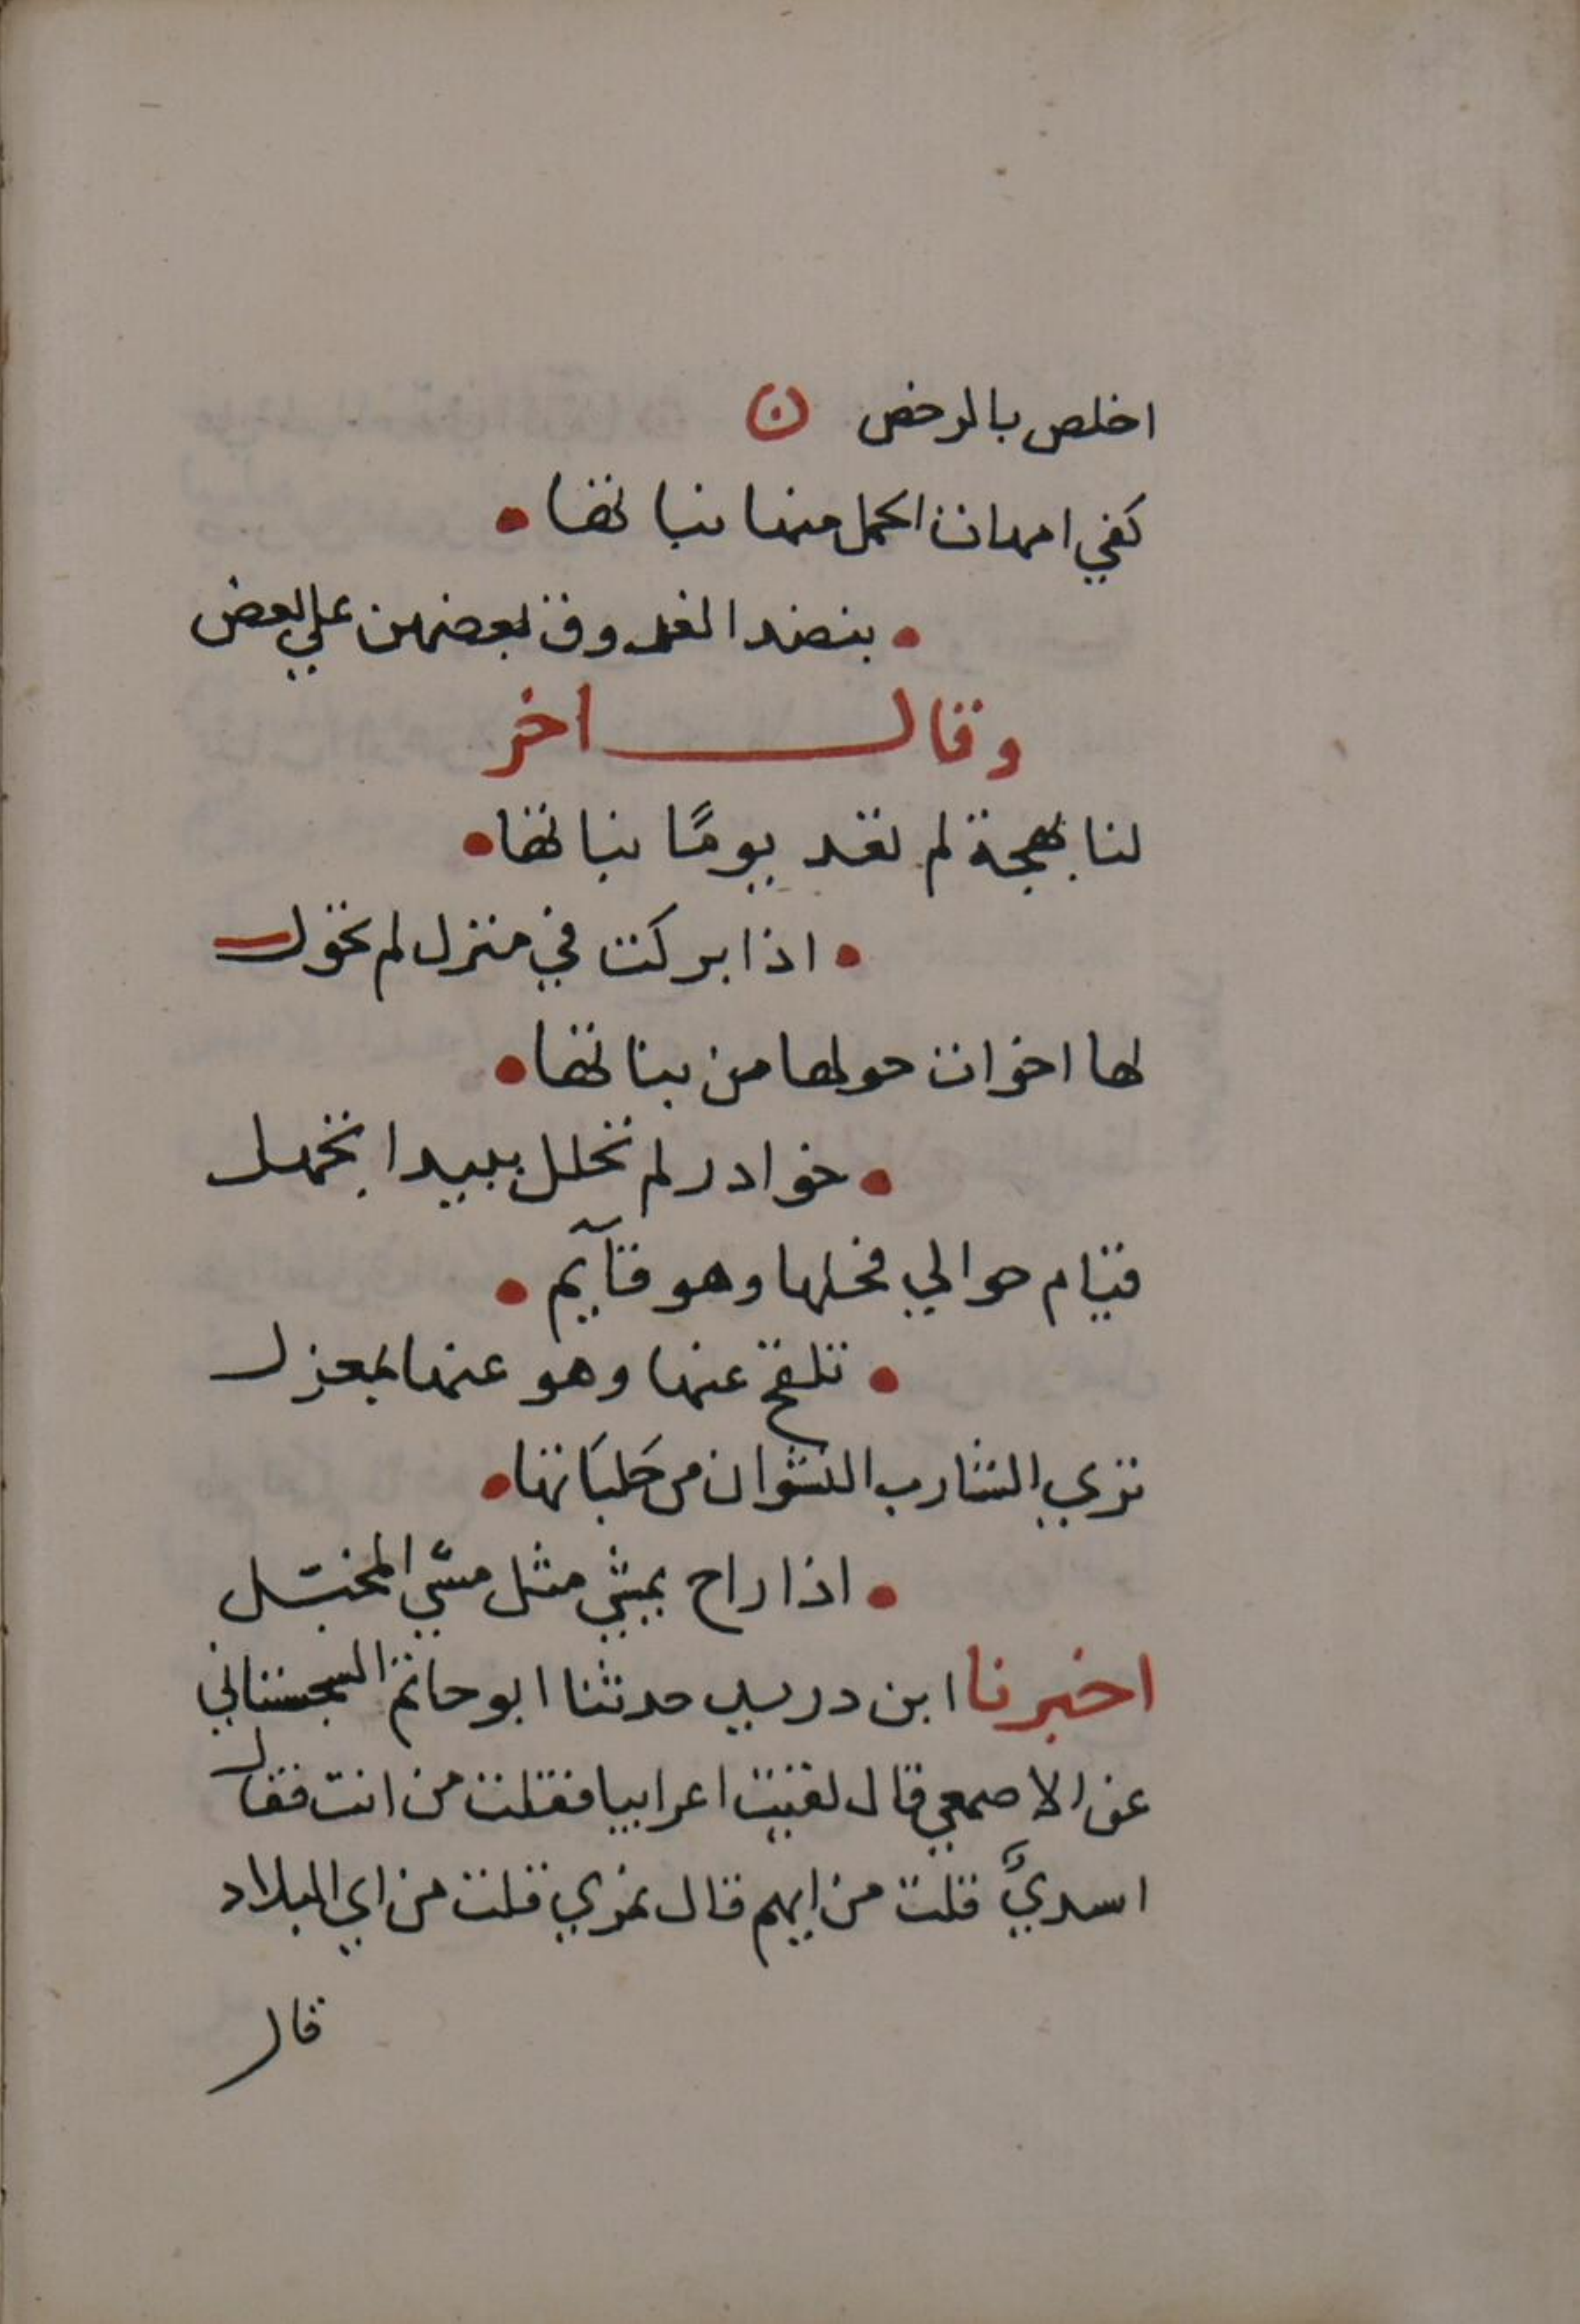 اخلص بالرخص ن
كفي امهات الحمل منها بناتها •
• بنضد الغدوق بعضهن علي بعض
وقال اخر
لنا بهجة لم تغد يومًا بناتها •
• اذا بركت في منزل لم تحول
لها اخوات حولها من بناتها •
• خوادر لم تحلل ببيدا بخمل
قيام حوالي فحلها وهو قآيم •
• تلقح عنها وهو عنها بمعزل
تري الشارب النشوان من حَلبَاتها •
• اذا راح يمشي مثل مشي المخبّل
اخبرنا ابن دريد حدثنا ابو حاتم السجستاني
عن الاصمعي قال لقيت اعرابيا فقلت من انت فقال
اسديٌّ قلت من ايهم قال نمري قلت من اي البلاد
قال